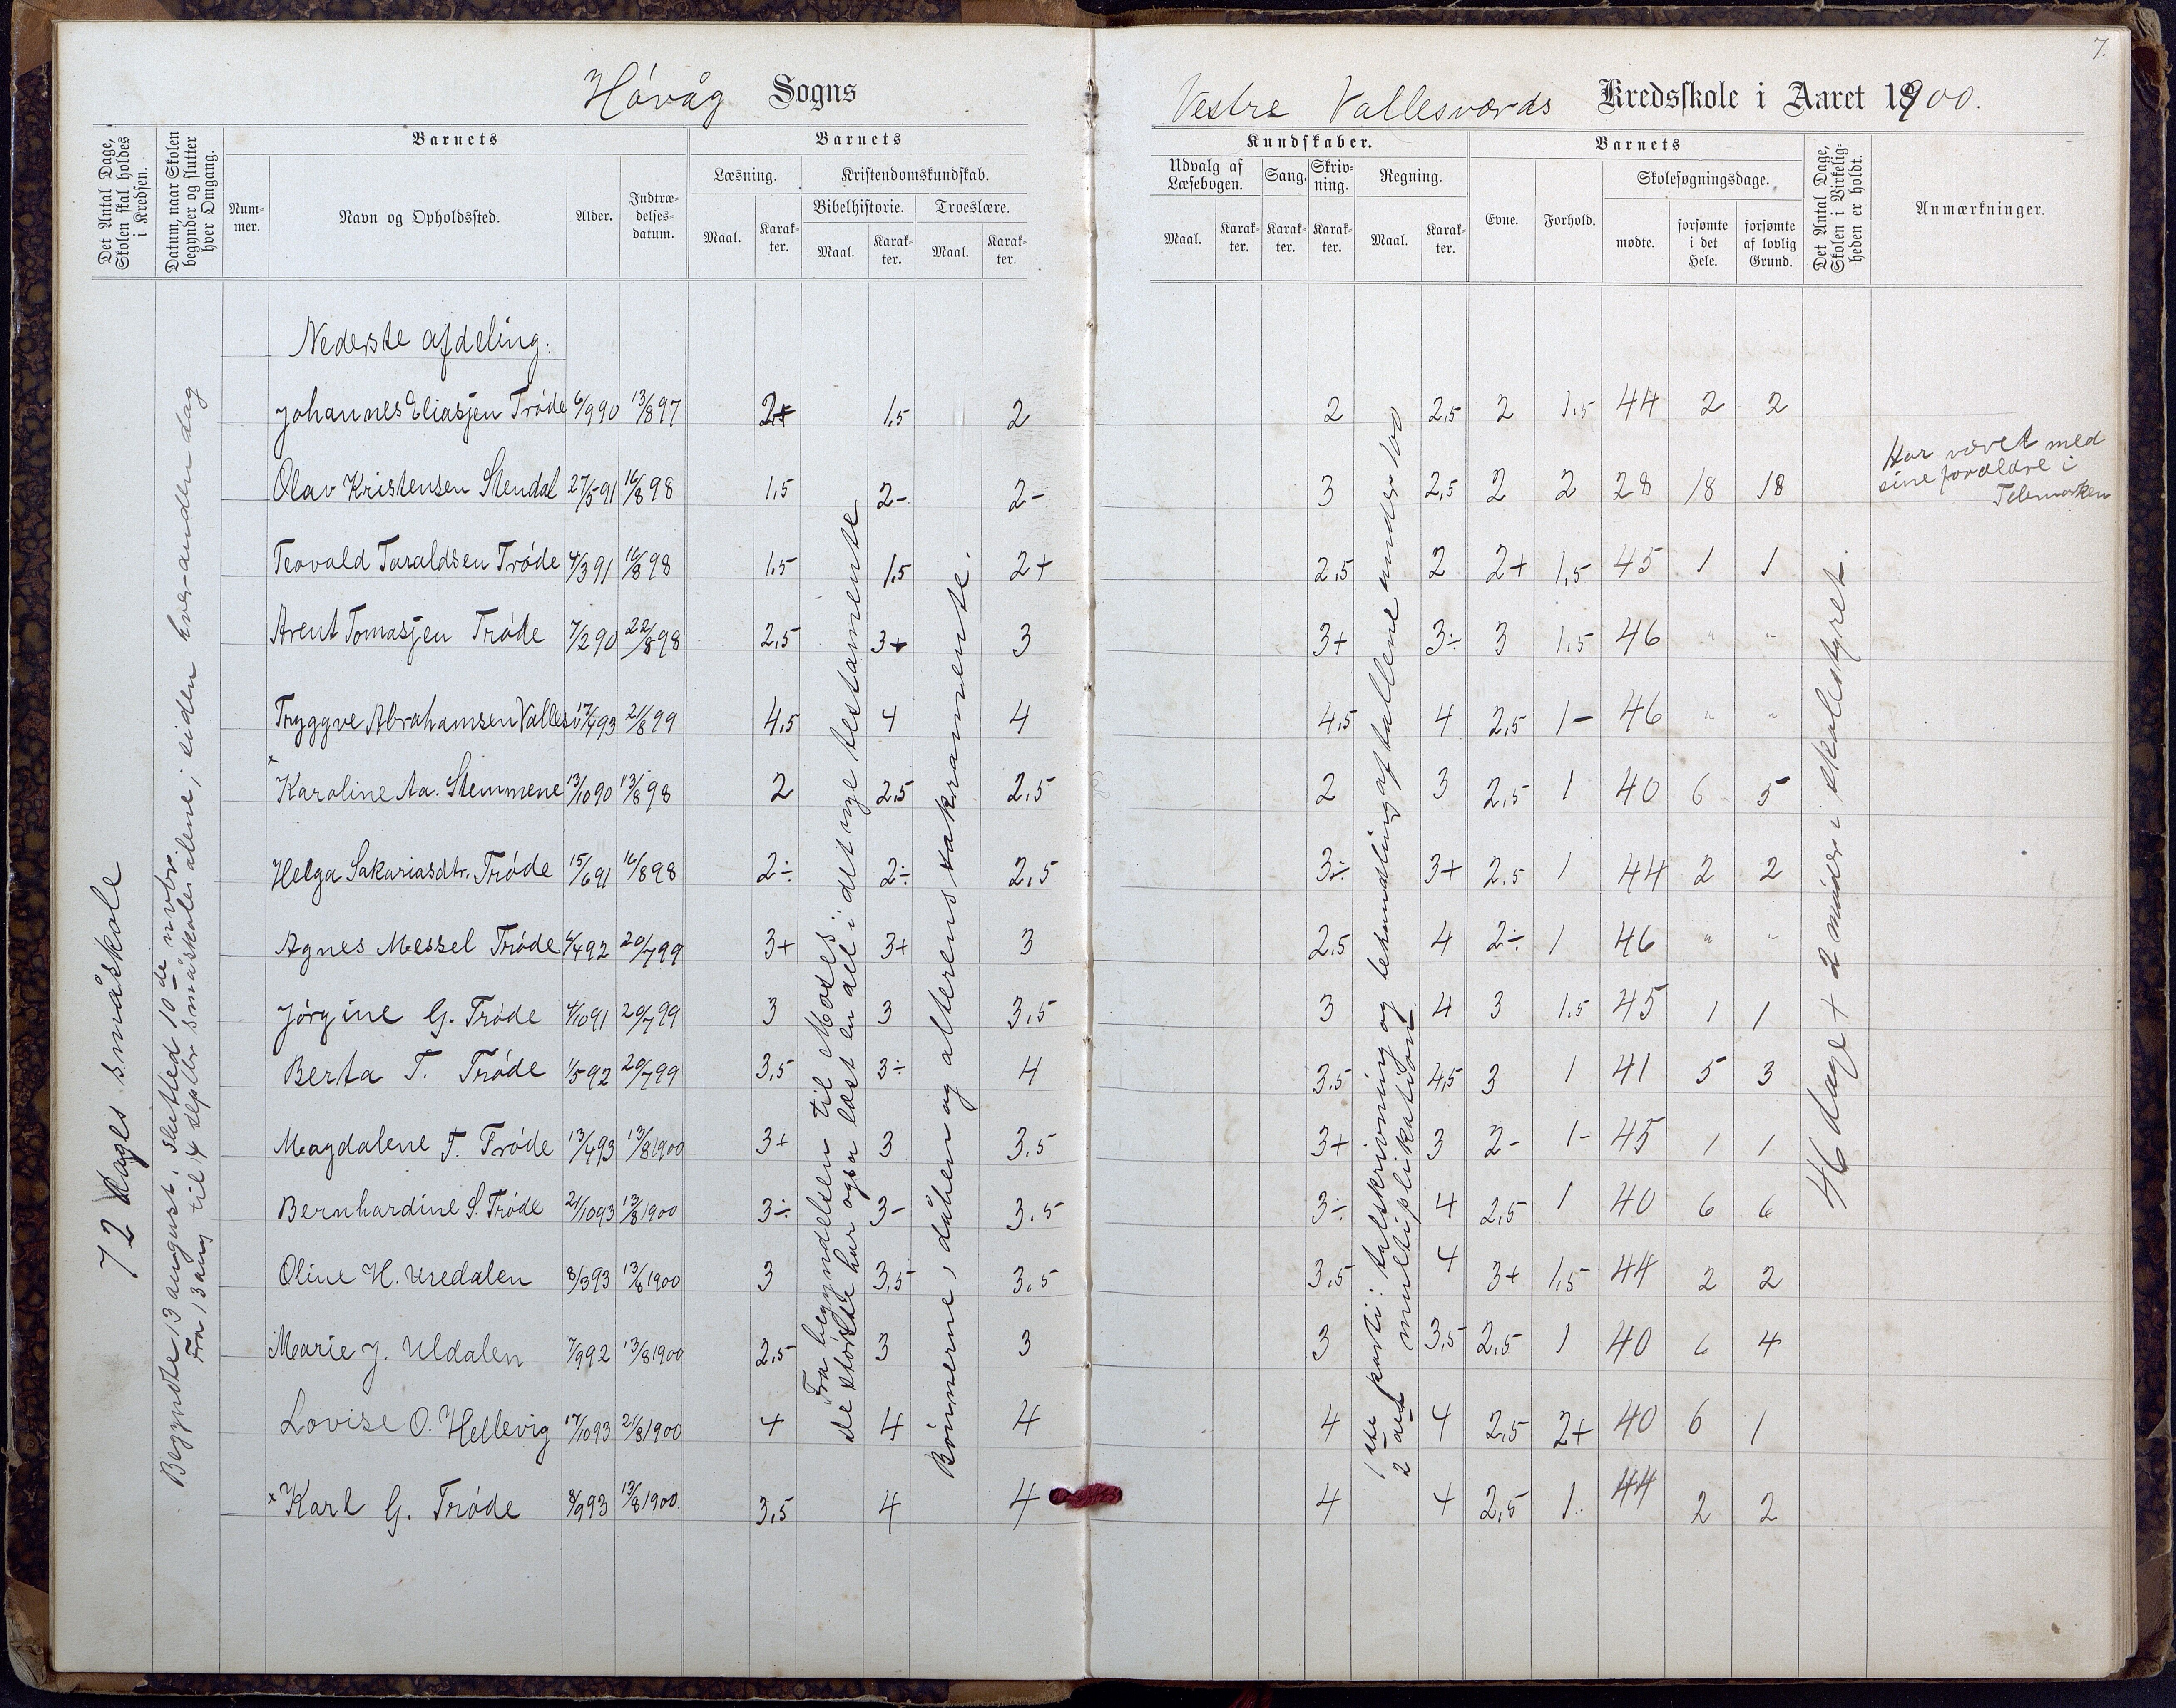 7.
Høvåg Sogns
Vestre Vallesværds Kredsskole i Aaret 1900.
Det Antal Dage, Skolen skal holdes i Kredsen.
Datum, naar Skolen begynder og slutter hver Omgang.
Barnets
Nummer.
Navn og Opholdssted.
Alder.
Indtrædelsesdatum.
Barnets
Læsning.
Maal.
Karakter.
Kristendomskundskab.
Bibelhistorie.
Maal.
Karakter.
Troeslære.
Maal.
Karakter.
Kundskaber.
Udvalg af Læsebogen.
Maal.
Karakter.
Sang.
Karakter.
Skrivning.
Karakter.
Regning.
Maal.
Karakter.
Barnets
Evne.
Forhold.
Skolesøgningsdage.
mødte.
forsømte i det Hele.
forsømte af lovlig Grund.
Det Antal Dage, Skolen i Virkeligheden er holdt.
Anmærkninger.
72 dages småskole
Begyndte 13 august. slutted 10de novbr.
Fra 13 aug til 4 septbr småskolen alene; siden hver anden dag
Nederste afdeling:
Johannes Eliasjen Trøde 6/9 90 13/8 97 2+ 1,5 2 2 2,5 2 1,5 44 2 2
Olav Kristensen Stendal 27/5 91 16/8 98 1,5 2- 2- 3 2,5 2 2 28 18 18 Har været med sine forældre i Telemarken
Teovald Taraldsen Trøde 4/3 91 16/8 98 1,5 1,5 2+ 2,5 2 2+ 1,5 45 1 1
Arent Tomasjen Trøde 7/2 90 22/8 98 2,5 3+ 3 3+ 3÷ 3 1,5 46 " "
Tryggve Abrahamsen Vallesv 17/4 93 21/8 99 4,5 4 4 4,5 4 2,5 1- 46 " "
Karoline Aa. Stemmene 13/10 90 13/8 98 2 2,5 2,5 2 3 2,5 1 40 6 5
Helga Sakariasdtr. Trøde 15/6 91 16/8 98 2÷ 2÷ 2,5 3÷ 3+ 2,5 1 44 2 2
Agnes Messel Trøde 6/4 92 20/7 99 3+ 3+ 3 2,5 4 2÷ 1 46 " "
Jørgine G. Trøde 4/10 91 20/7 99 3 3 3,5 3 4 3 1,5 45 1 1
Berta T. Trøde 1/5 92 20/7 99 3,5 3÷ 4 3,5 4,5 3 1 41 5 3
Magdalene T. Trøde 13/4 93 13/8 1900 3+ 3 3,5 3+ 3 2- 1- 45 1 1
Bernhardine S. Trøde 21/10 93 13/8 1900 3÷ 3- 3,5 3÷ 4 2,5 1 40 6 6
Oline H. Uredalen 8/3 93 13/8 1900 3 3,5 3,5 3,5 4 3+ 1,5 44 2 2
Marie J. Uldalen 7/9 92 13/8 1900 2,5 3 3 3 3,5 2,5 1 40 6 4
Lovise O. Hellevig 17/10 93 21/8 1900 4 4 4 4 4 2,5 2+ 40 6 1
Karl G. Trøde 8/9 93 13/8 1900 3,5 4 4 4 4 2,5 1 44 2 2
Fra begyndelsen til Moses;
de største har også læst en del i det nye testamente
Bønnerne, dåben og alterens sakramente.
1ste parti: talskrivning og behandling af tallene under 100
2det multiplikation
46 dage + 2 møder i skolestyret.